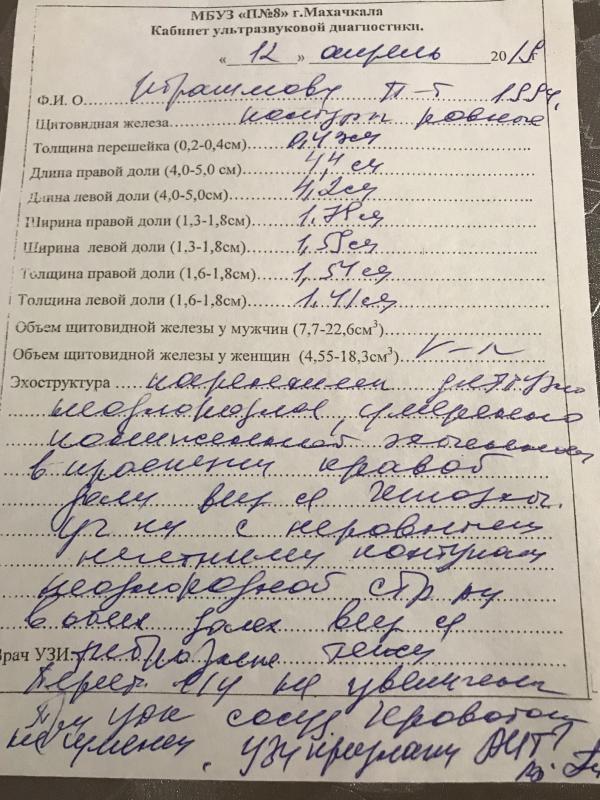 МБУЗ «П№8» г.Махачкала
Кабинет ультразвуковой диагностики.
« 12 » апрель 20
Ф.И. О П-т 1994
Щитовидная железа контуры ровные
Толщина перешейка (0,2-0,4см) 0,4 см
Длина правой доли (4,0-5,0 см) 4,4 см
Длина левой доли (4,0-5,0см) 4,2 см
Ширина правой доли (1,3-1,8см)
Ширина левой доли (1,3-1,8см) 1,59 см
Толщина правой доли (1,6-1,8см) 1,54 см
Толщина левой доли (1,6-1,8см) 1,41 см
Объем щитовидной железы у мужчин (7,7-22,6см³)
Объем щитовидной железы у женщин (4,55-18,3см³) V-n
Эхоструктура паренхимы диффузно
неоднородная, умеренно
в проекции правой
доли
с неровными
контурами
неоднородной стр-ры
в обеих долях
Врач УЗИ: тяжи
л/у не увеличены
При сосуд. кровоток
не изменен. УЗИ признаки АИТ?